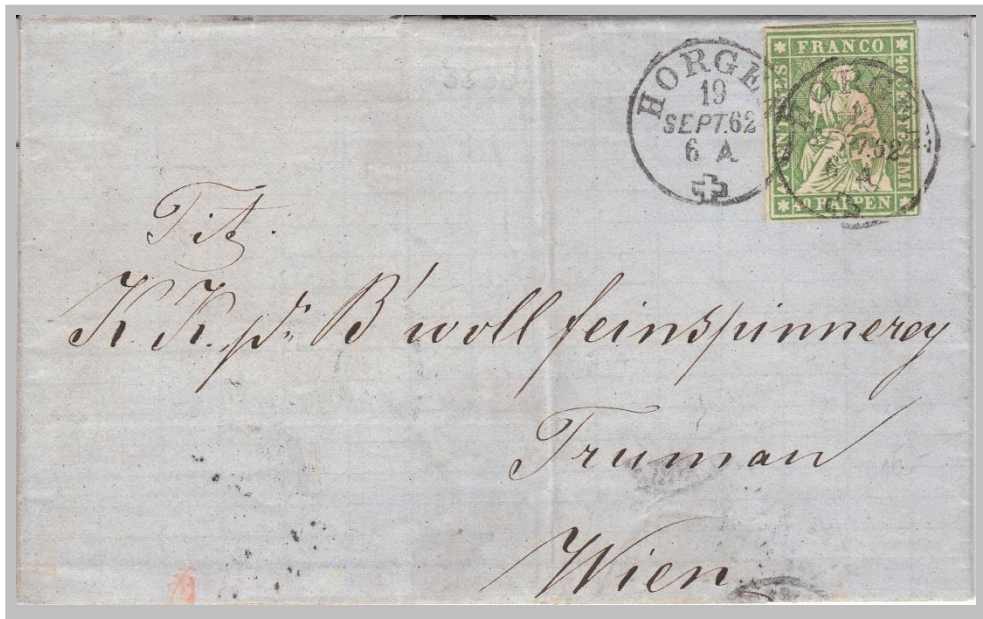 HORGEN
19
SEPT. 62
6 A
FRANCO
CENTIMES
40 CENTESIMI
40 RAPPEN
Tit.
K. K. pr. B'wollfeinspinnerey
Truman
Wien